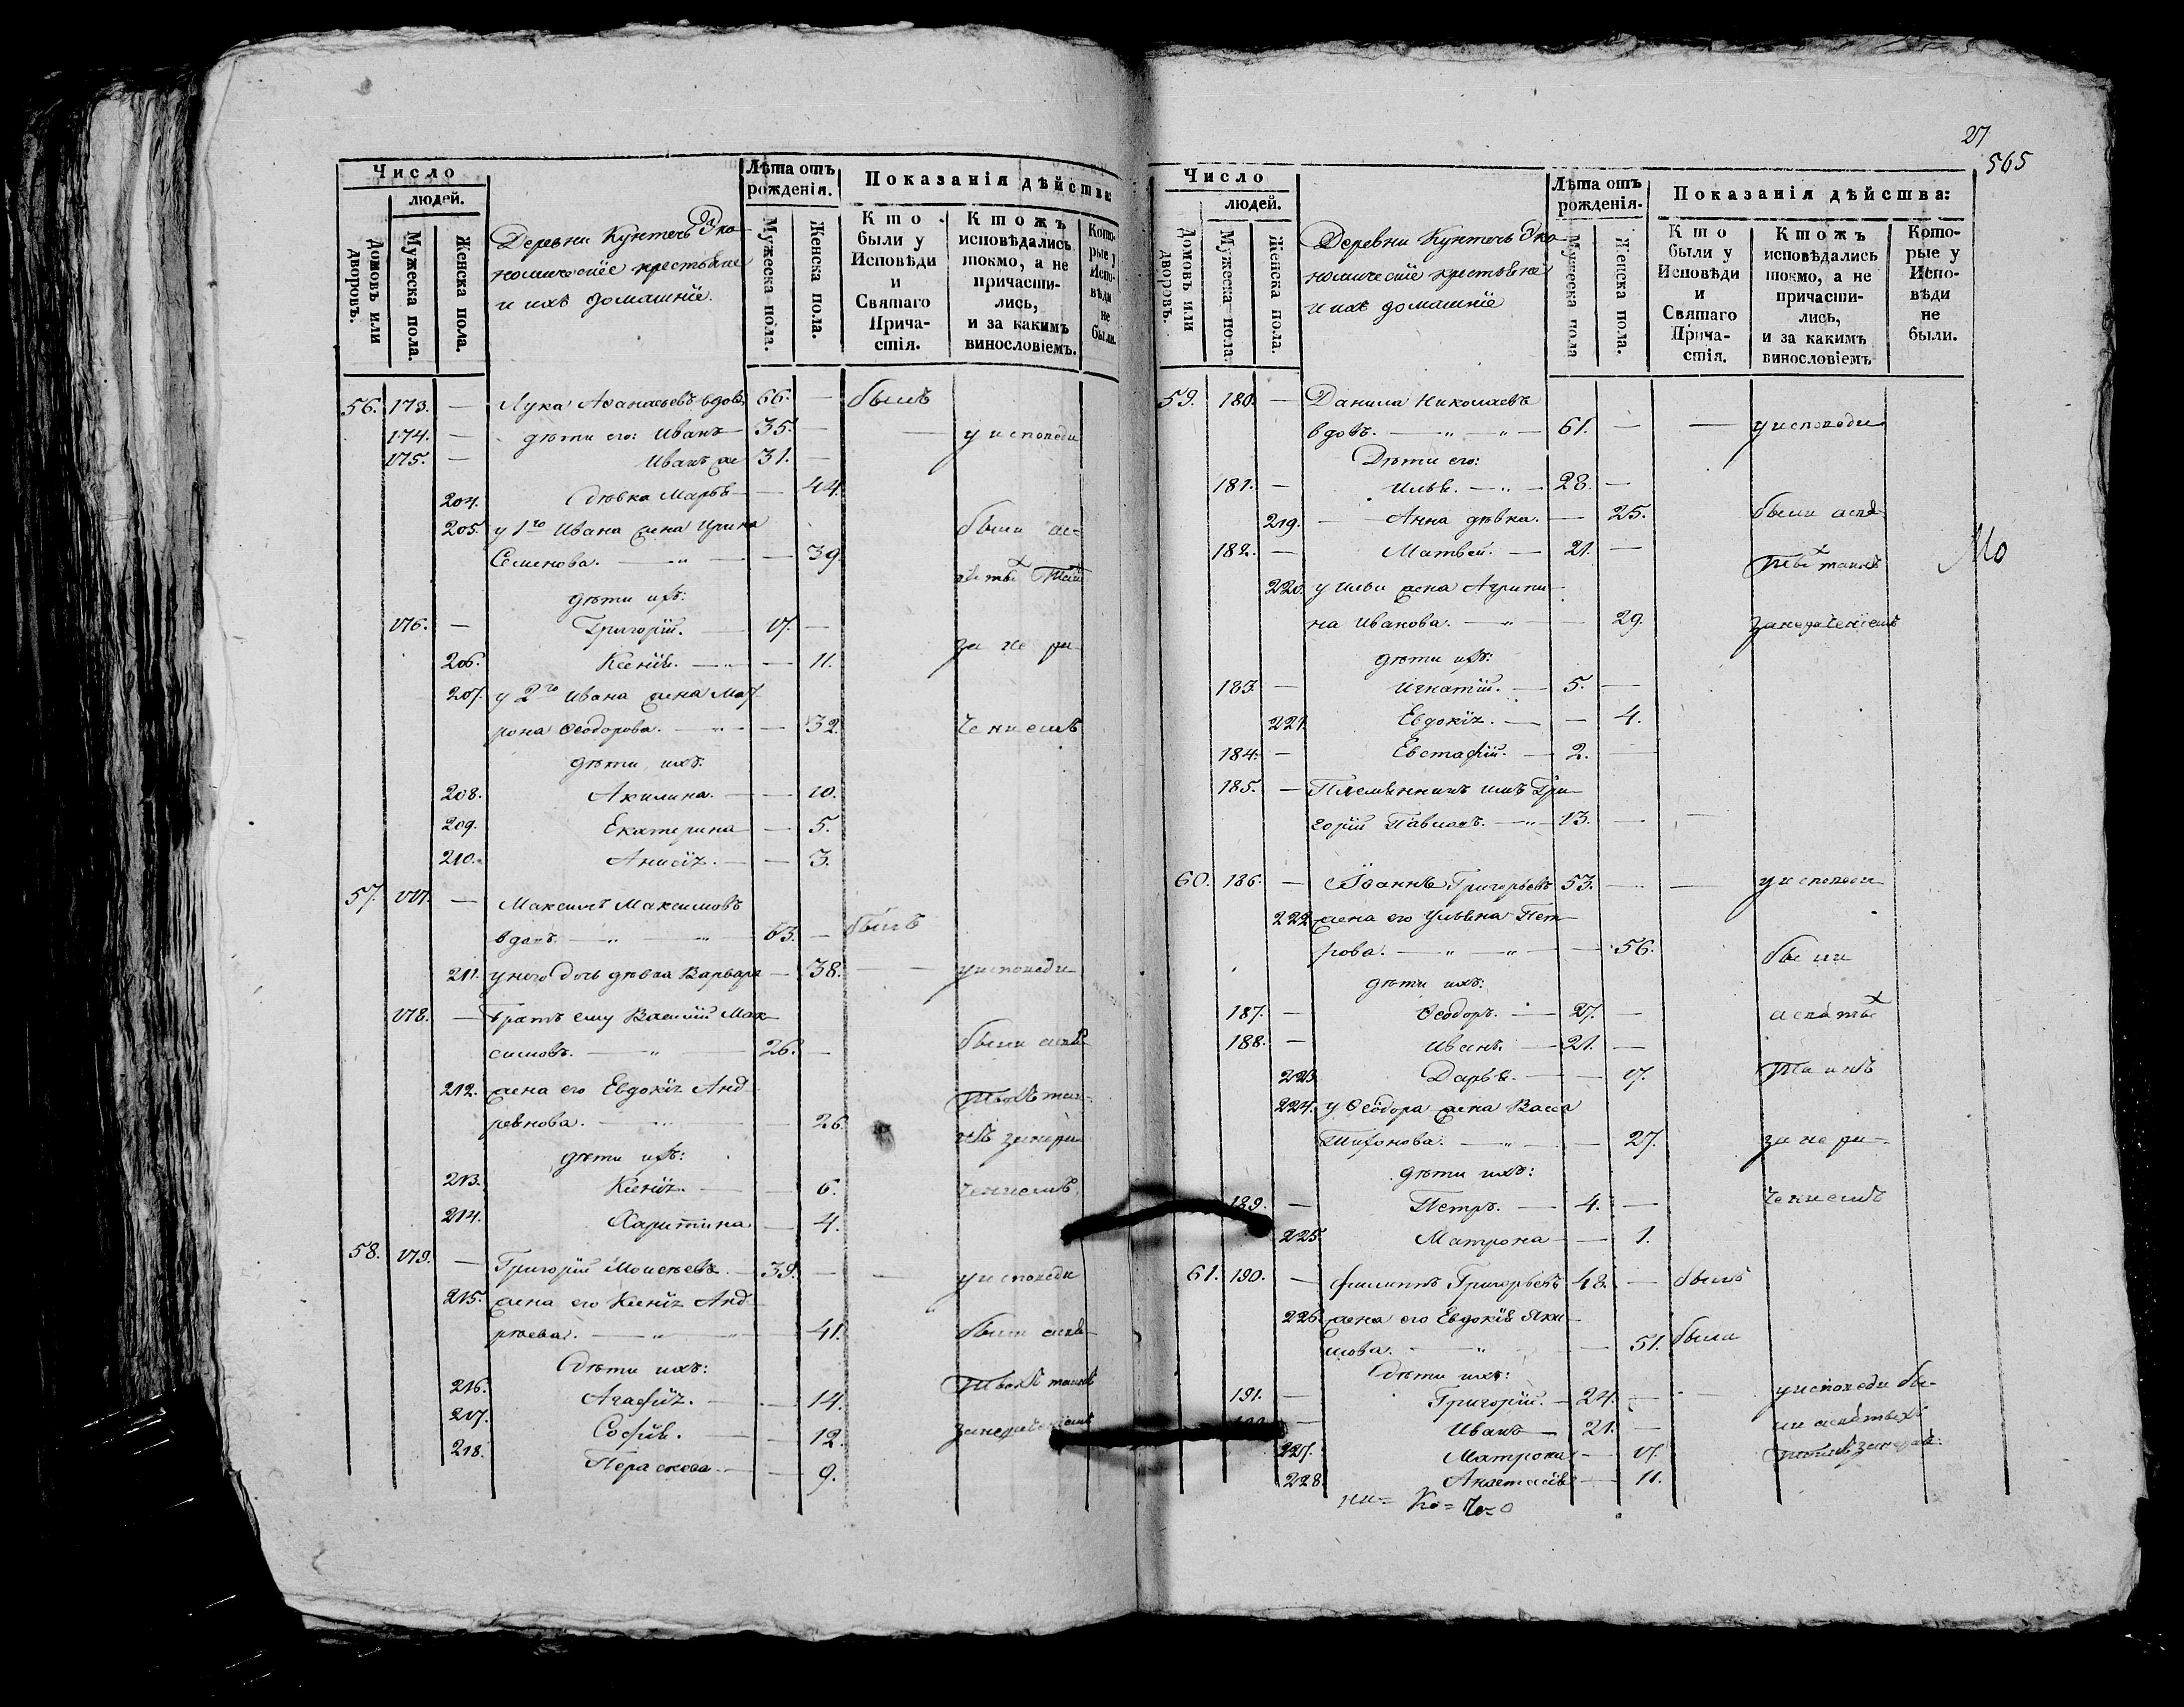 Число
людей.
Домовъ или дворовъ.
Мужеска пола.
Женска пола.
Деревни Кунтечь Эко-
номическіе крестьяне
и ихъ домашніе.
Лѣта отъ рожденія.
Мужеска пола.
Женска пола.
Показанія дѣйства:
Кто были у Исповѣди и Святаго Прича-стія.
Ктожъ исповѣдались токмо, а не причасти-лись, и за какимъ винословіемъ.
Кото-рые у Испо-вѣди не были.
56. 173. — Лука Аѳанасьевъ вдовъ 66. — былъ
174. — дѣти его: Иванъ — 35. — — у исповеди
175. — Иванъ же 31. —
204. Дѣвка Марья — — 44.
205. у 1го Ивана жена Ирина были
Семенова. — „ — — 39.
дѣти ихъ:
176. — Григорій. — 17. —
206. Ксенія. — „ — 11. за не ра-
207. у 2го Ивана жена Мат-
рона Ѳеодорова. — „ — — 32. ченіемъ
дѣти ихъ:
208. Акилина. — — 10.
209. Екатерина — 5.
210. Анисія. — — 3.
57. 177. — Максимъ Максимовъ
вдовъ. — „ — „ — 63. — былъ
211. у него дочь дѣвка Варвара — 38. — — у исповеди
178. — Братъ ему Василій Мак-
симовъ. — „ — 26. — были
212. жена его Евдокія Анд-
реянова. — „ — 26.
дѣти ихъ:
213. Ксенія. — — 6. ченіемъ.
214. Харитина — 4.
58. 179. — Григорій Моисеевъ — 39. — — у исповеди
215. жена его Ксенія Анд-
рѣева. — „ — „ — 41. были
Дѣти ихъ:
216. Агафія. — — 14.
217. Софія. — — 12.
218. Пераскева — — 9.
27
565
Число
людей.
Домовъ или дворовъ.
Мужеска пола.
Женска пола.
Деревни Кунтечь Эко-
номическіе крестьяне
и ихъ домашніе
Лѣта отъ рожденія.
Мужеска пола
Женска пола.
Показанія дѣйства:
Кто были у Исповѣди и Святаго Прича-стія.
Ктожъ исповѣдались токмо, а не причасти-лись, и за какимъ винословіемъ
Кото-рые у Испо-вѣди не были.
59. 180. — Данила Николаевъ
вдовъ. — „ — „ — 61. — — у исповеди
Дѣти его:
181. — Илья. — „ — 28. —
219. — Анна дѣвка. — — 25. были
182. — Матвей. — 21. —
220. у Ильи жена Агрипи-
на Иванова. — „ — — 29.
дѣти ихъ:
183. — Игнатій. — 5. —
221. Евдокія. — — 4.
184. — Евстафій. — 2. —
185. — Племянникъ имъ Гри-
горій Павловъ. — „ — 13. — —
60. 186. — Іоаннъ Григорьевъ 53. — — у исповеди
222. жена его Ульяна Пет-
рова. — „ — „ — — 56. были
дѣти ихъ:
187. — Ѳеодоръ. — 27. —
188. — Иванъ. — 21. —
223. Дарья. — — 17.
224. у Ѳеодора жена Васса
Тихонова. — „ — — 27. за не ра-
дѣти ихъ:
189. — Петръ. — 4. — ченіемъ
225. Матрона — — 1.
61. 190. — Филиппъ Григорьевъ 48. — былъ
226. жена его Евдокія Яки-
мова. — „ — 51. была
Дѣти ихъ:
191. — Григорій. — 24. — — у исповеди бы-
— Иванъ — 21. — ли
227. Матрона — 17.
228. Анастасія — 11.